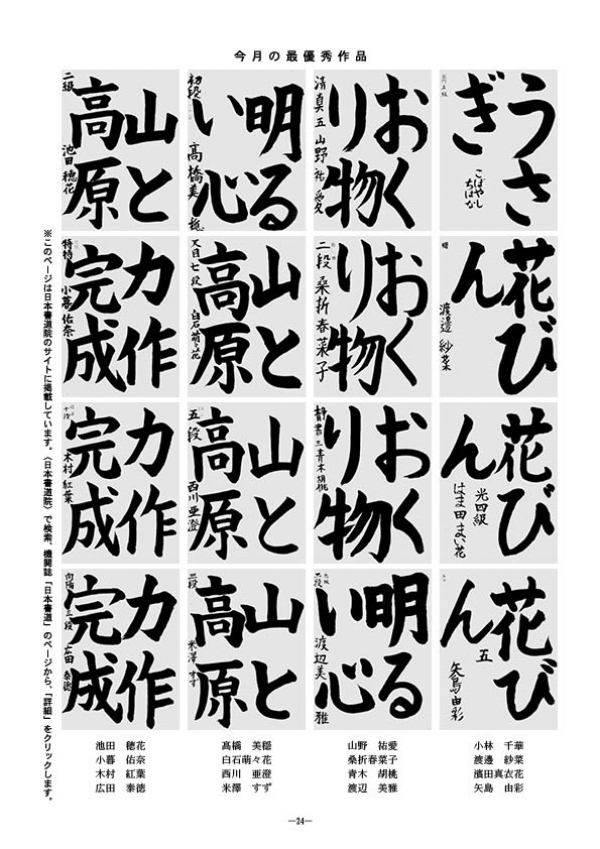 今月の最優秀作品
うさ
ぎ
こばやし
ちはな
おく
り物
清真五 山野祐愛
明る
い心
初段
高橋美穏
山と
高原
二級
池田穂花
花び
ん
渡邉紗菜
おく
り物
二段 桑折春菜子
山と
高原
天目七段
白石萌々花
力作
完成
特待
小暮佑奈
花び
ん
光四級
はま田まい花
おく
り物
青木胡桃
山と
高原
五段
西川亜澄
力作
完成
木村紅葉
花び
ん
五
矢島由彩
明る
い心
渡辺美雅
山と
高原
三段
米澤すず
力作
完成
広田泰徳
※このページは日本書道院のサイトに掲載しています。〈日本書道院〉で検索、機関誌「日本書道」のページから、「詳細」をクリックします。
池田 穂花
小暮 佑奈
木村 紅葉
広田 泰徳
髙橋 美穏
白石萌々花
西川 亜澄
米澤 すず
山野 祐愛
桑折春菜子
青木 胡桃
渡辺 美雅
小林 千華
渡邊 紗菜
濱田真衣花
矢島 由彩
―24―